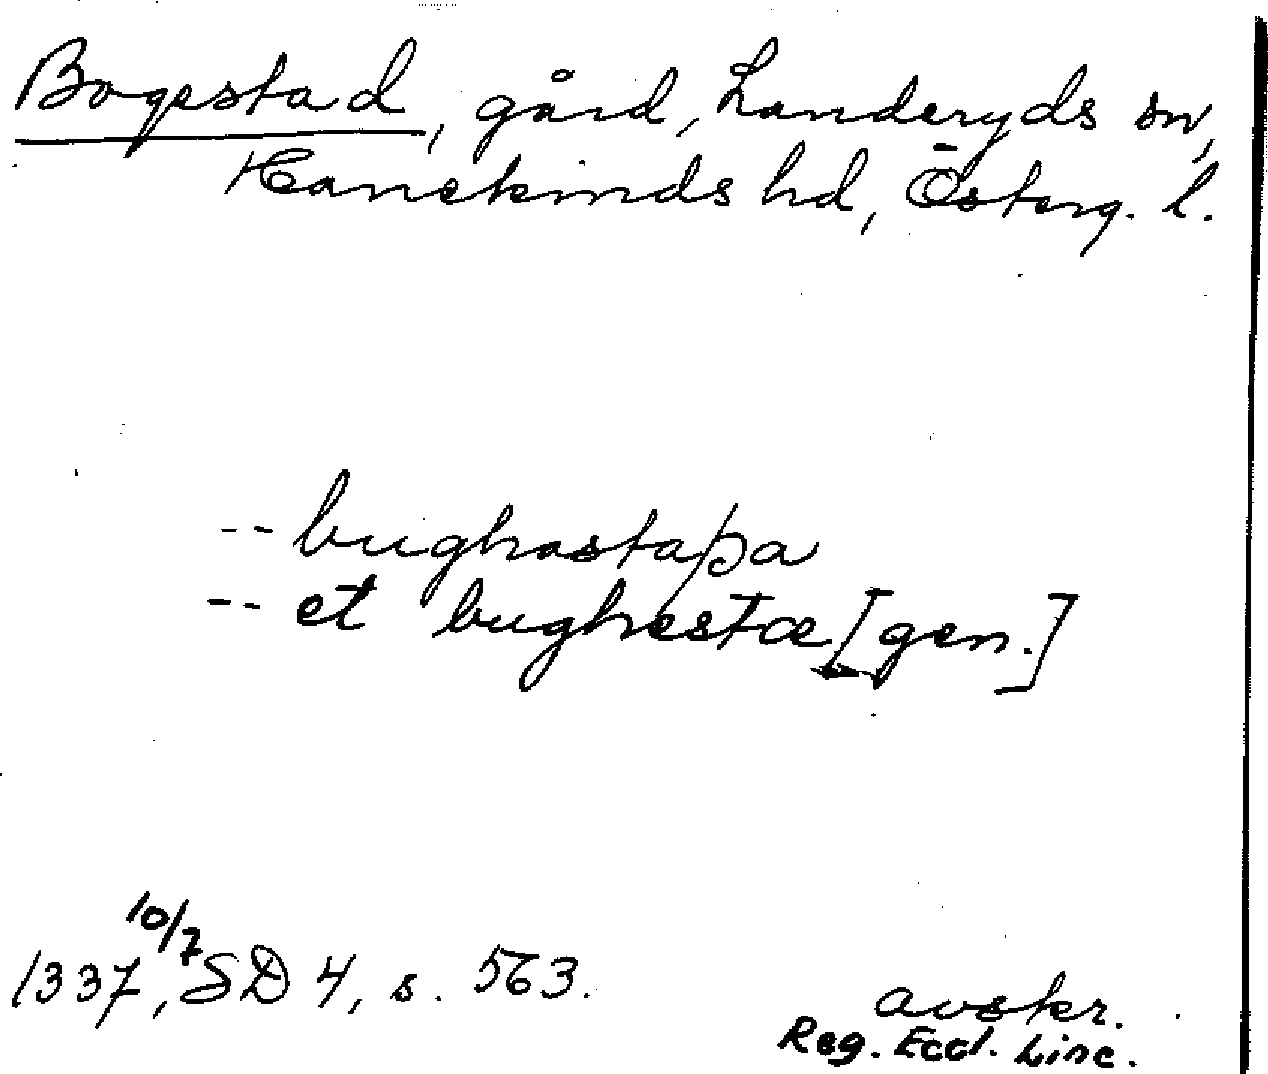 Bogestad, gård, Landeryds sn,
Hanekinds hd, Österg. l.
-- bughastaþa
-- et bughestæ [gen.]
1337 10/7, SD 4, s. 563.
avskr.
Reg. Eccl. Linc.